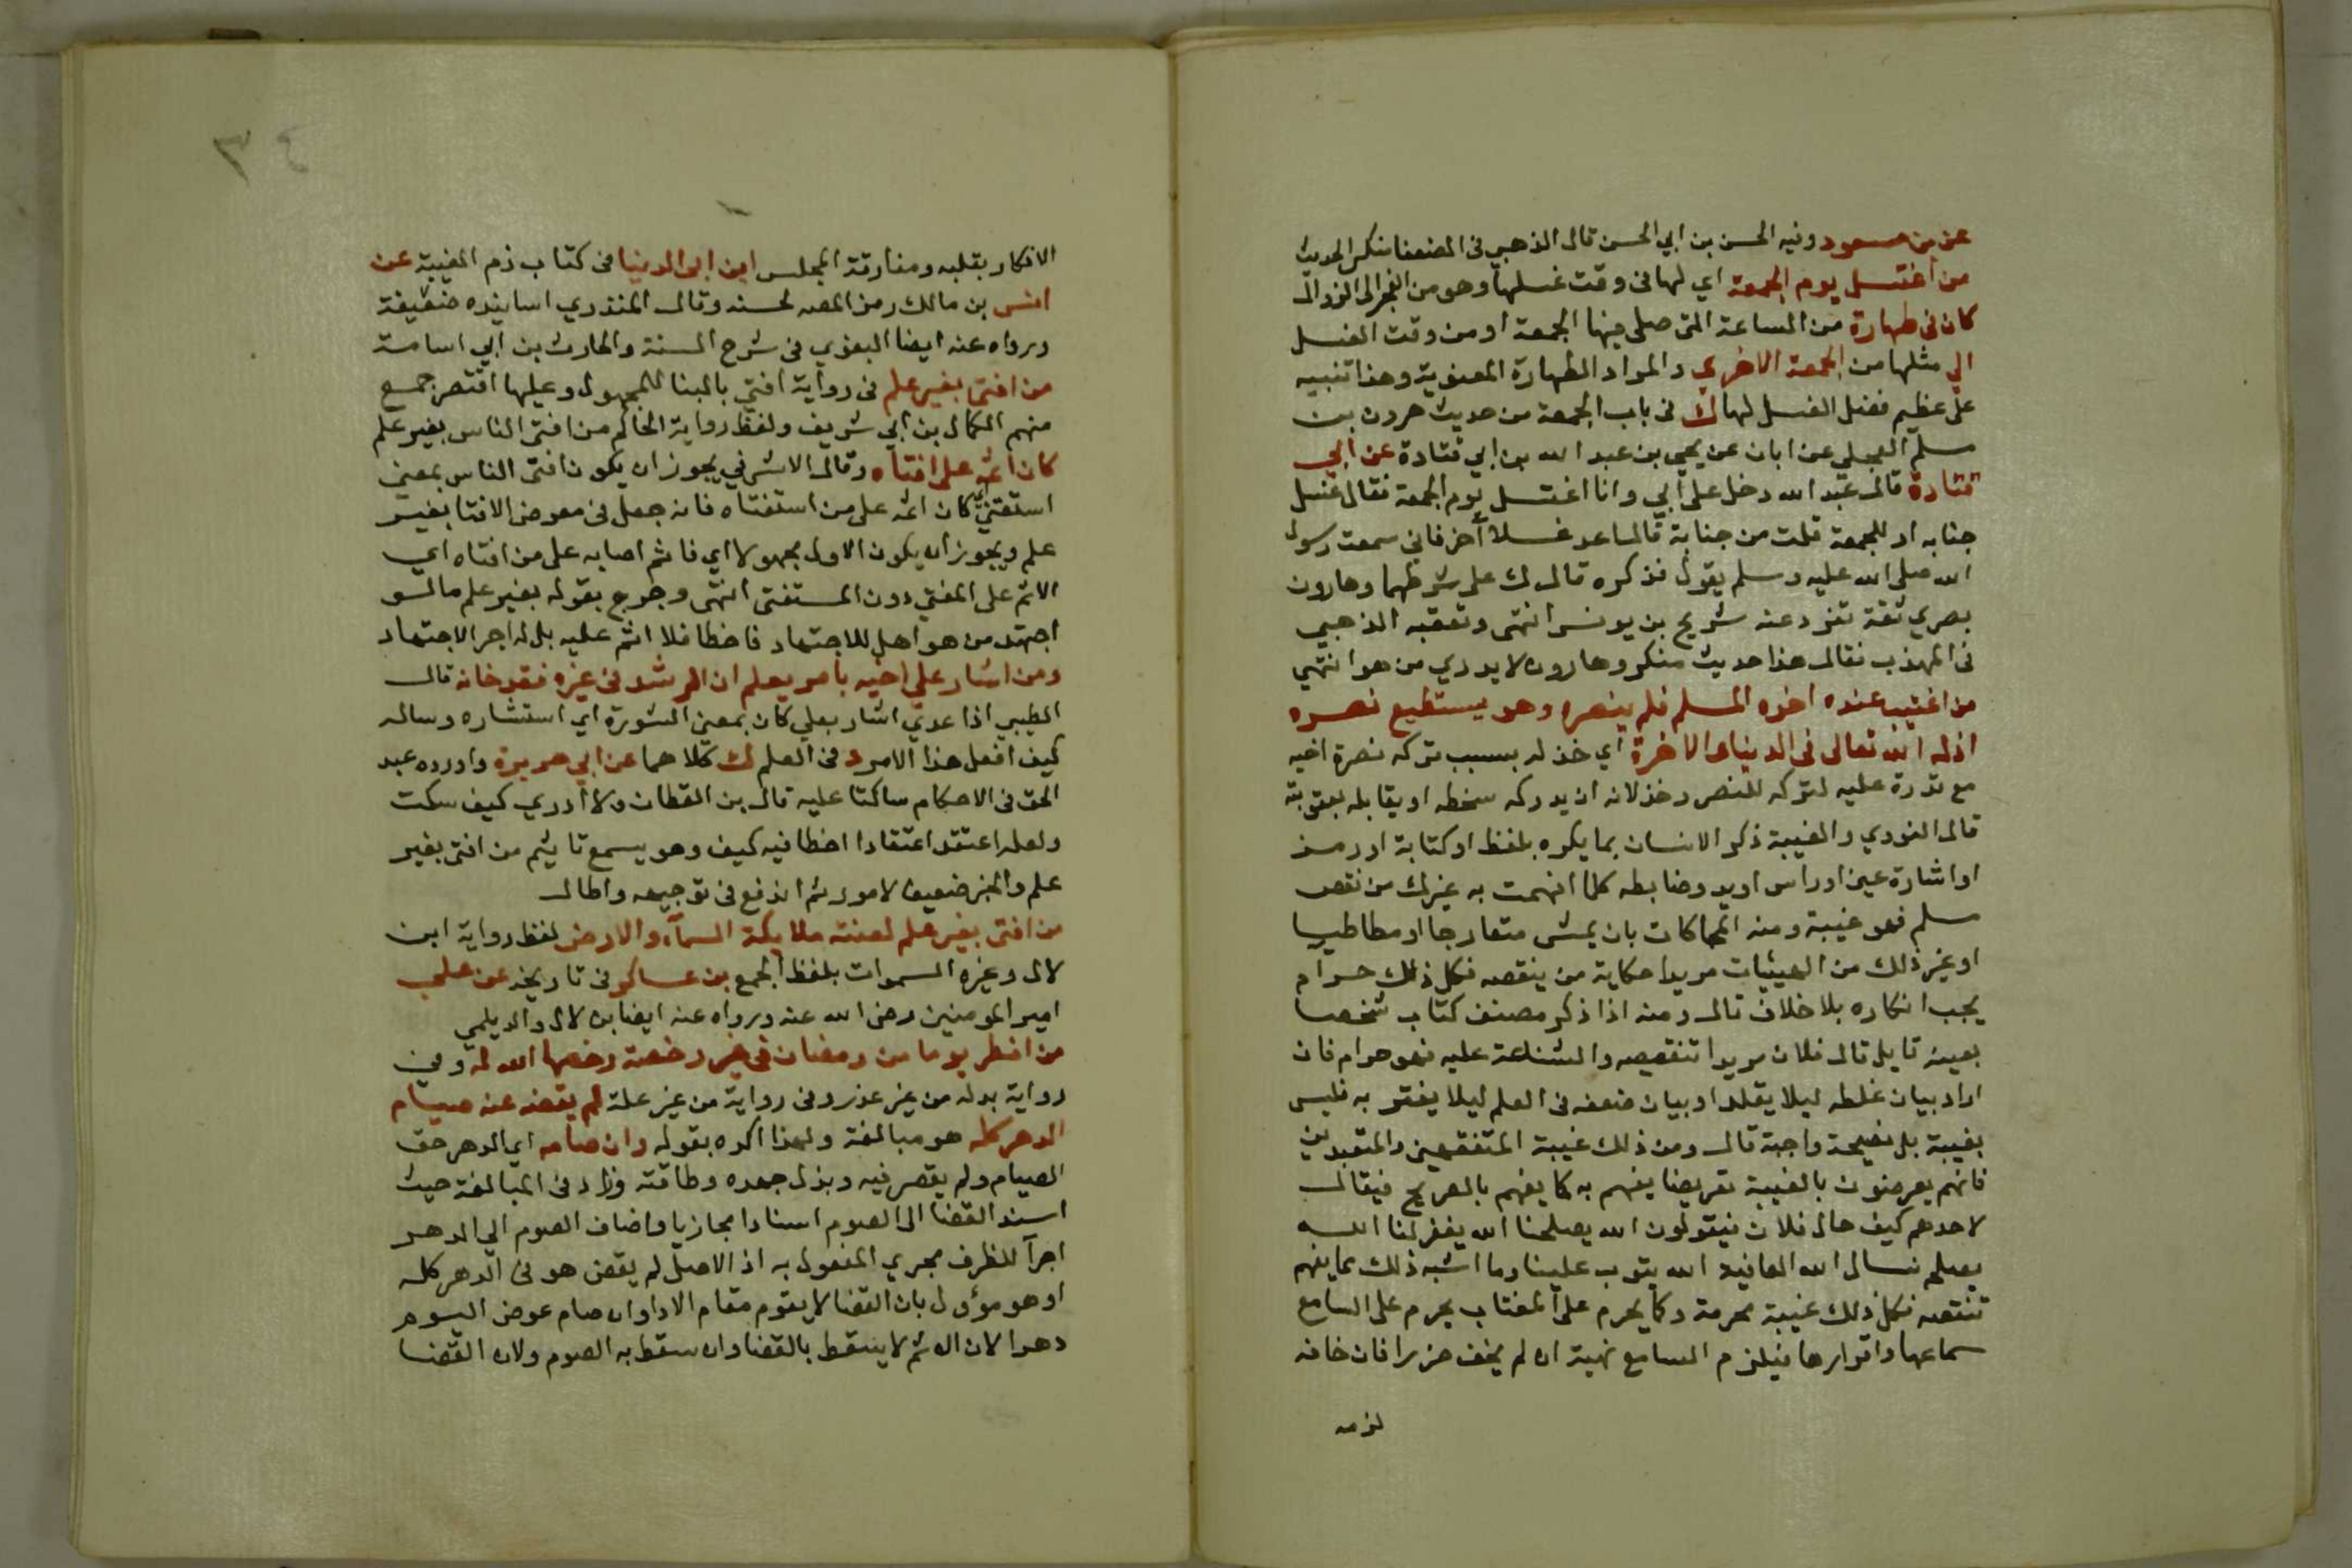 عن بن مسعود وفيه الحسن بن ابي الحسن قال الذهبي في الضعفا منكر الحديث
من اغتسل يوم الجمعة اي لها في وقت غسلها وهو من الفجر الى الزوال
كان في طهارة من الساعة التي صلى فيها الجمعة او من وقت الغسل
الي مثلها من الجمعة الاخري والمراد الطهارة المعنوية وهذا تنبيه
على عظيم فضل الغسل لها ك في باب الجمعة من حديث هرون بن
مسلم العجلي عن ابان عن يحيى بن عبد الله بن ابي قتادة عن ابي
قتادة قال عبد الله دخل على ابي وانا اغتسل يوم الجمعة فقال غسل
جنابه او للجمعة قلت من جنابة قال اعد غسلا آخر فاني سمعت رسول
الله صلى الله عليه وسلم يقول فذكره قال ك على شرطهما وهارون
بصري ثقة تفرد عنه شريح بن يونس انتهى وتعقبه الذهبي
في المهذب فقال هذا حديث منكر وهارون لا يدري من هو انتهي
من اغتيب عنده اخوه المسلم فلم ينصره وهو يستطيع نصره
اذله الله تعالى في الدنيا والاخرة اي خذله بسبب تركه نصرة اخيه
مع قدرة عليه لتركه للنصر وخذلانه ان يدركه سخطه او يقابله بعقوبته
قال النووي والغيبة ذكر الانسان بما يكره بلفظ او كتابة او رمز
او اشارة عين او راس او يد وضابطه كلما افهمت به غيرك من نقص
مسلم فهو غيبة ومنه المحاكات بان يمشى متعارجا او مطاطيا
او غير ذلك من الهيئات مريدا حكاية من ينقصه فكل ذلك حرام
يجب انكاره بلا خلاف قال ومنه اذا ذكر مصنف كتاب شخصا
بعينه قايلا قال فلان مريدا تنقيصه والشناعة عليه فهو حرام فان
اراد بيان غلطه ليلا يقلد او بيان ضعفه في العلم ليلا يغتر به فليس
بغيبة بل نصيحة واجبة قال ومن ذلك غيبة المتفقهين والمتعبدين
فانهم يعرضون بالغيبة تعريضا يفهم به كما يفهم بالصريح فيقال
لاحدهم كيف حال فلان فيقولون الله يصلحنا الله يغفر لنا الله
يصلحه نسال الله العافية الله يتوب علينا وما اشبه ذلك مما يفهم
تنقصه فكل ذلك غيبة محرمة وكما يحرم على المغتاب يحرم على السامع
سماعها واقرارها فيلزم السامع نهيه ان لم يخف ضررا فان خافه
لزمه
٣٤
الانكار بقلبه ومفارقة المجلس ابن ابى الدنيا في كتاب ذم الغيبة عن
انس بن مالك رمز المصه لحسنه وقال المنذري اسانيده ضعيفة
ورواه عنه ايضا البغوي في شرح السنة والحارث بن ابي اسامة
من افتى بغير علم في رواية افتي بالبنا للمجهول وعليها اقتصر جمع
منهم الكمال بن ابي شريف ولفظ رواية الحاكم من افتى الناس بغير علم
كان اثمه على افتاه وقال الاشرفي يجوز ان يكون افتى الناس بمعنى
استفتي كان اثمه على من استفتاه فانه جعل في معرض الافتا بغير
علم ويجوز ان يكون الاول مجهولا اي فاثم اصابه على من افتاه اي
الاثم على المفتي دون المستفتى انتهى وخرج بقوله بغير علم ما لو
اجتهد من هو اهل للاجتهاد فاخطا فلا اثم عليه بل له اجر الاجتهاد
ومن اشار على اخيه بامر يعلم ان الرشد في غيره فقد خانه قال
الطيبي اذا عدي اشار بعلي كان بمعنى المشورة اي استشاره وساله
كيف افعل هذا الامر د في العلم ك كلاهما عن ابي هريرة واورده عبد
الحق في الاحكام ساكتا عليه قال بن القطان ولا ادري كيف سكت
ولعله اعتقد اعتقادا اخطا فيه كيف وهو يسمع تاثيم من افتى بغير
علم والخبر ضعيف لامور ثم اندفع في توجيهه واطال
من افتى بغير علم لعنته ملايكة السمآء والارض لفظ رواية ابن
لال وغيره السموات بلفظ الجمع بن عساكر في تاريخه عن علي
امير المومنين رضي الله عنه ورواه عنه ايضا بن لال والديلمي
من افطر يوما من رمضان في غير رخصة رخصها الله له وفي
رواية بدله من غير عذر وفي رواية من غير علة لم يقض عنه صيام
الدهر كله هو مبالغة ولهذا اكده بقوله وان صامه اي الدهر حق
الصيام ولم يقصر فيه وبذل جهده وطاقته وزاد في المبالغة حيث
اسند القضا الى الصوم اسنادا مجازيا واضاف الصوم الي الدهر
اجرآ للظرف مجري المفعول به اذ الاصل لم يقض هو في الدهر كله
او هو مؤول بان القضا لا يقوم مقام الادا وان صام عوض اليوم
دهرا لان الاثم لا يسقط بالقضا وان سقط به الصوم ولان القضا